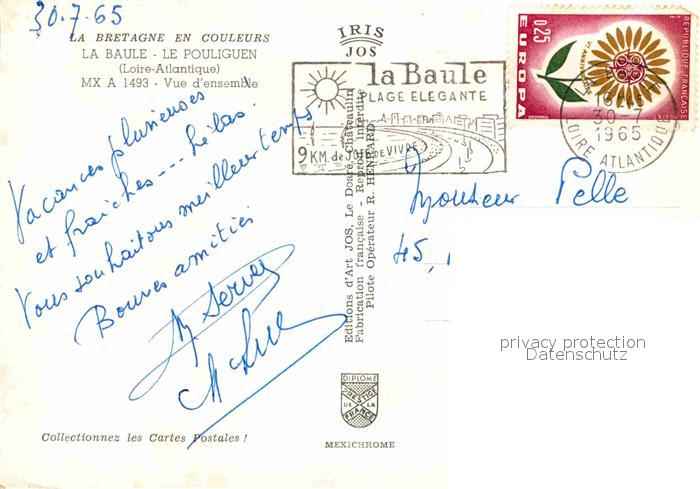 30.7.65
LA BRETAGNE EN COULEURS
LA BAULE - LE POULIGUEN
(Loire-Atlantique)
MX A 1493 - Vue d'ensemble
Vacances pluvieuses
et fraîches --- hélas.
Vous souhaitons meilleur temps
Bonnes amitiés
Collectionnez les Cartes Postales !
IRIS
JOS
la Baule
PLAGE ELEGANTE
9 KM. de JOIE DE VIVRE
Editions d'Art JOS, Le Doaré, Châteaulin
Fabrication française - Reprod. interdite
Pilote Opérateur R. HENRARD
DIPLOME
PRESTIGE
DE LA
FRANCE
MEXICHROME
0,25
EUROPA
REPUBLIQUE FRANÇAISE
30-7
1965
LOIRE ATLANTIQUE
Monsieur Pelle
45,
privacy protection
Datenschutz